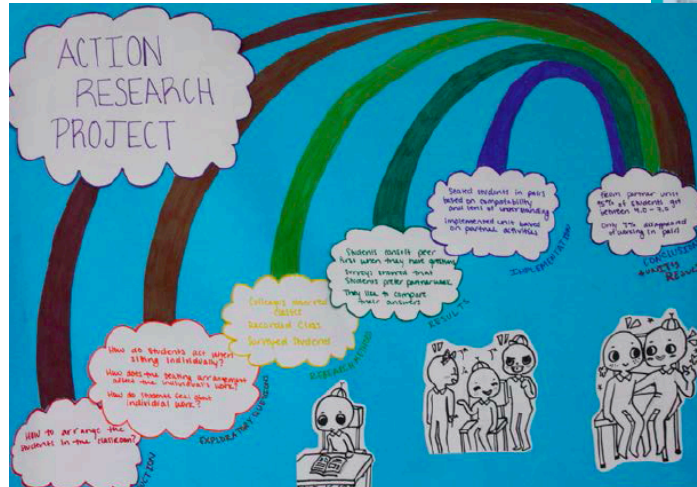 ACTION
RESEARCH
PROJECT
How to arrange the
students in the classroom?
How do students act when
sitting individually?
How does the seating arrangement
affect the individual's work?
How do students feel about
individual work?
EXPLORATORY
Colleagues observed
classes
Recorded Class
Surveyed Students
RESEARCH METHODS
Students consult peer
first when they have questions
Surveys showed that
students prefer partner work
They like to compare
their answers
RESULTS
Seated students in pairs
based on compatability
and level of understanding
Implemented unit based
on partner activities
IMPLEMENTATION
partner unit
95% of students got
between 4.0 - 7.0
Only 7% disapproved
of working in pairs